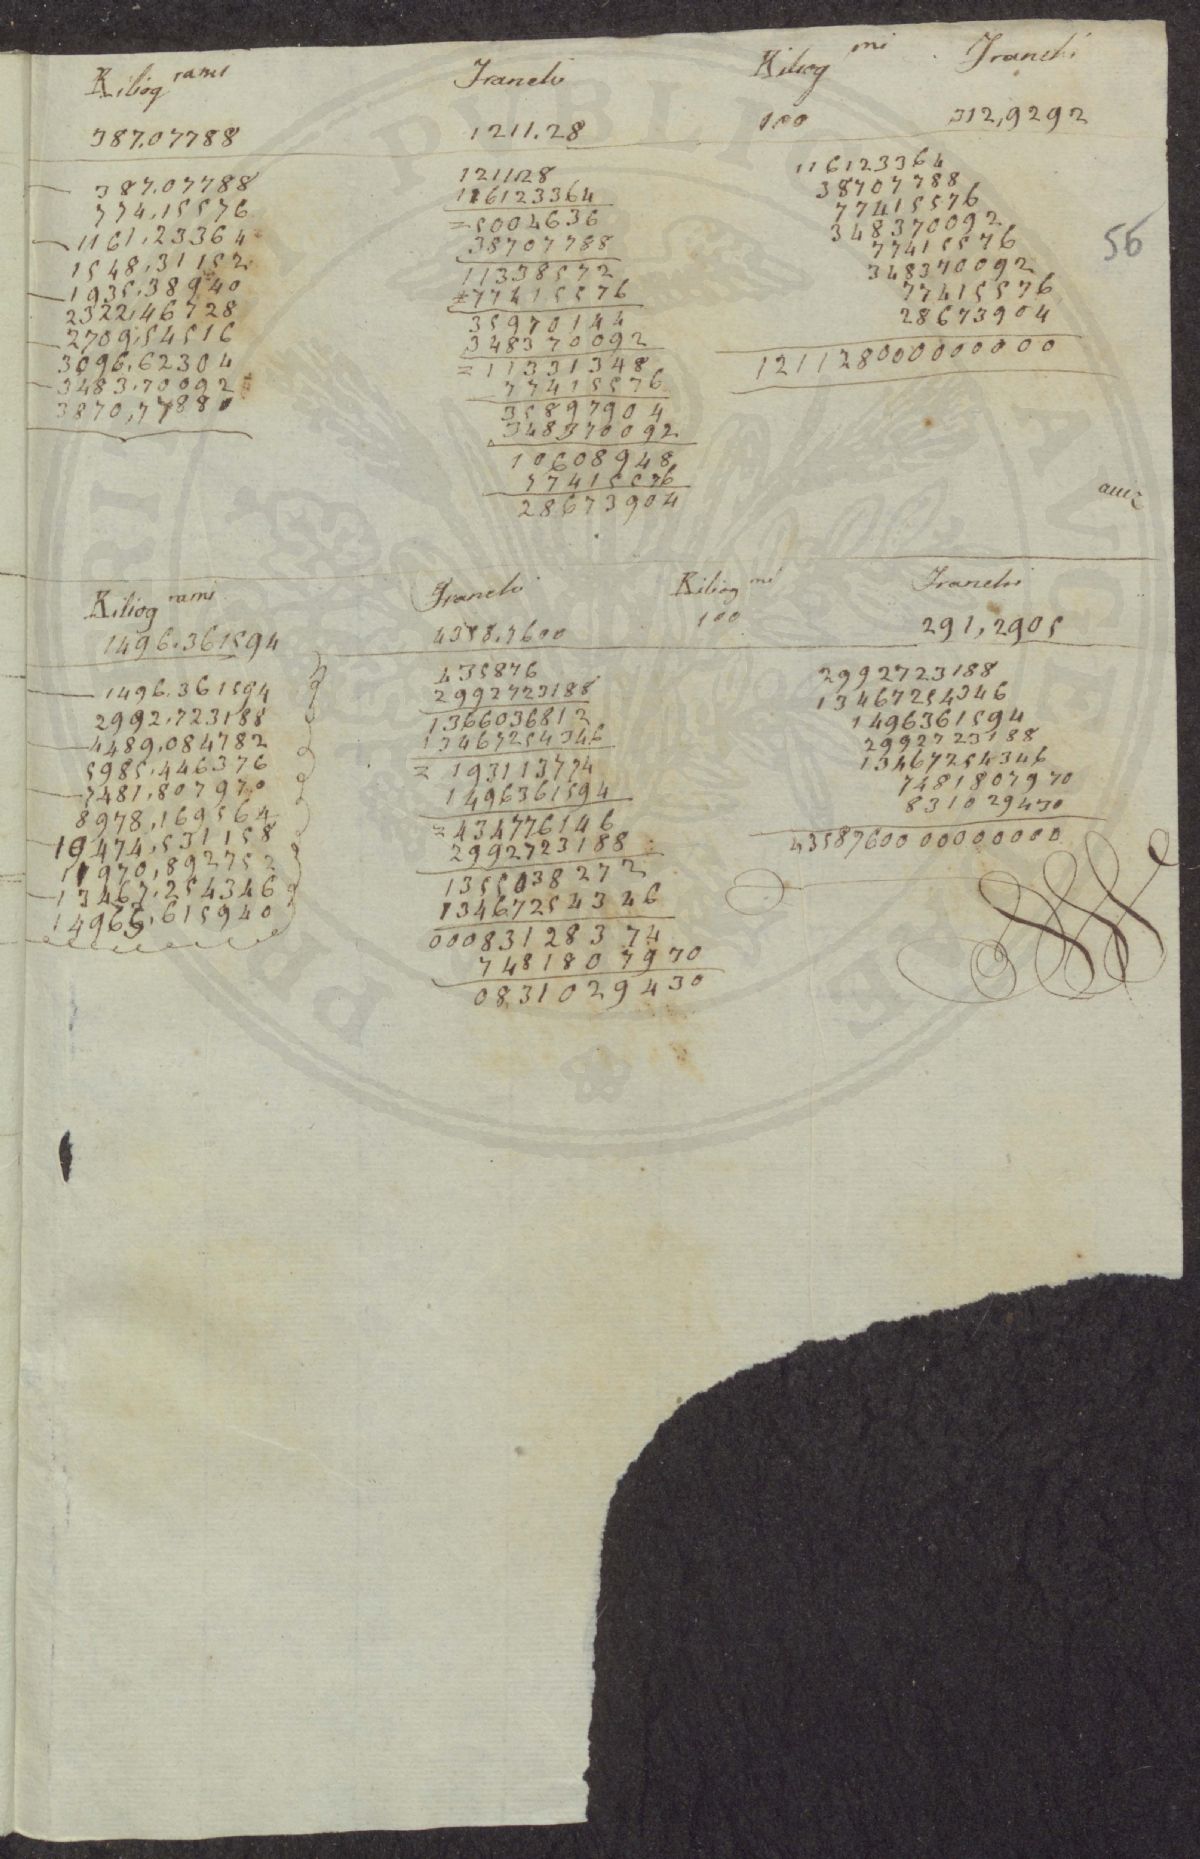 Kiliog rami Franchi Kiliog mi Franchi
387.07788 1211.28 100 312,9292
387.07788
774.15576
1161.23364
1548.31152
1935.38940
2322.46728
2709.54516
3096.62304
3483.70092
3870,77880
121128
116123364
= 5004636
38707788
11338572
77415576
35970144
348370092
= 11331348
77415576
35897904
348370092
10608948
77415576
28673904
116123364
38707788
77415576
348370092
77415576
348370092
77415576
28673904
121128000000000
56
Kiliog rami Franchi Kiliog mi Franchi
1496.361594 4358.7600 100 291,2905
1496.361594
2992.723188
4489.084782
5985.446376
7481.807970
8978,169564
10474,531158
11970,892752
13467.254346
14963.615940
435876
2992723188
1366036812
13467254346
= 193113774
1496361594
= 434776146
2992723188
1355038272
13467254346
00083128374
7481807970
0831029430
2992723188
13467254346
1496361594
2992723188
13467254346
7481807970
831029430
4358760000000000